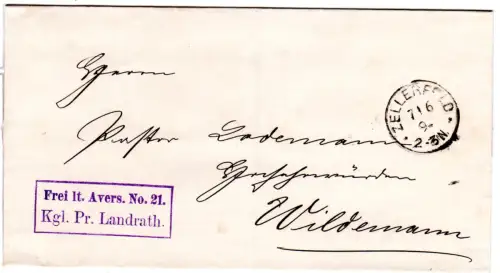 Herrn
Pastor Lodemann
Hochehrwürden
Wildemann
ZELLERFELD
7 1 6
9
2-3N.
Frei lt. Avers. No. 21.
Kgl. Pr. Landrath.